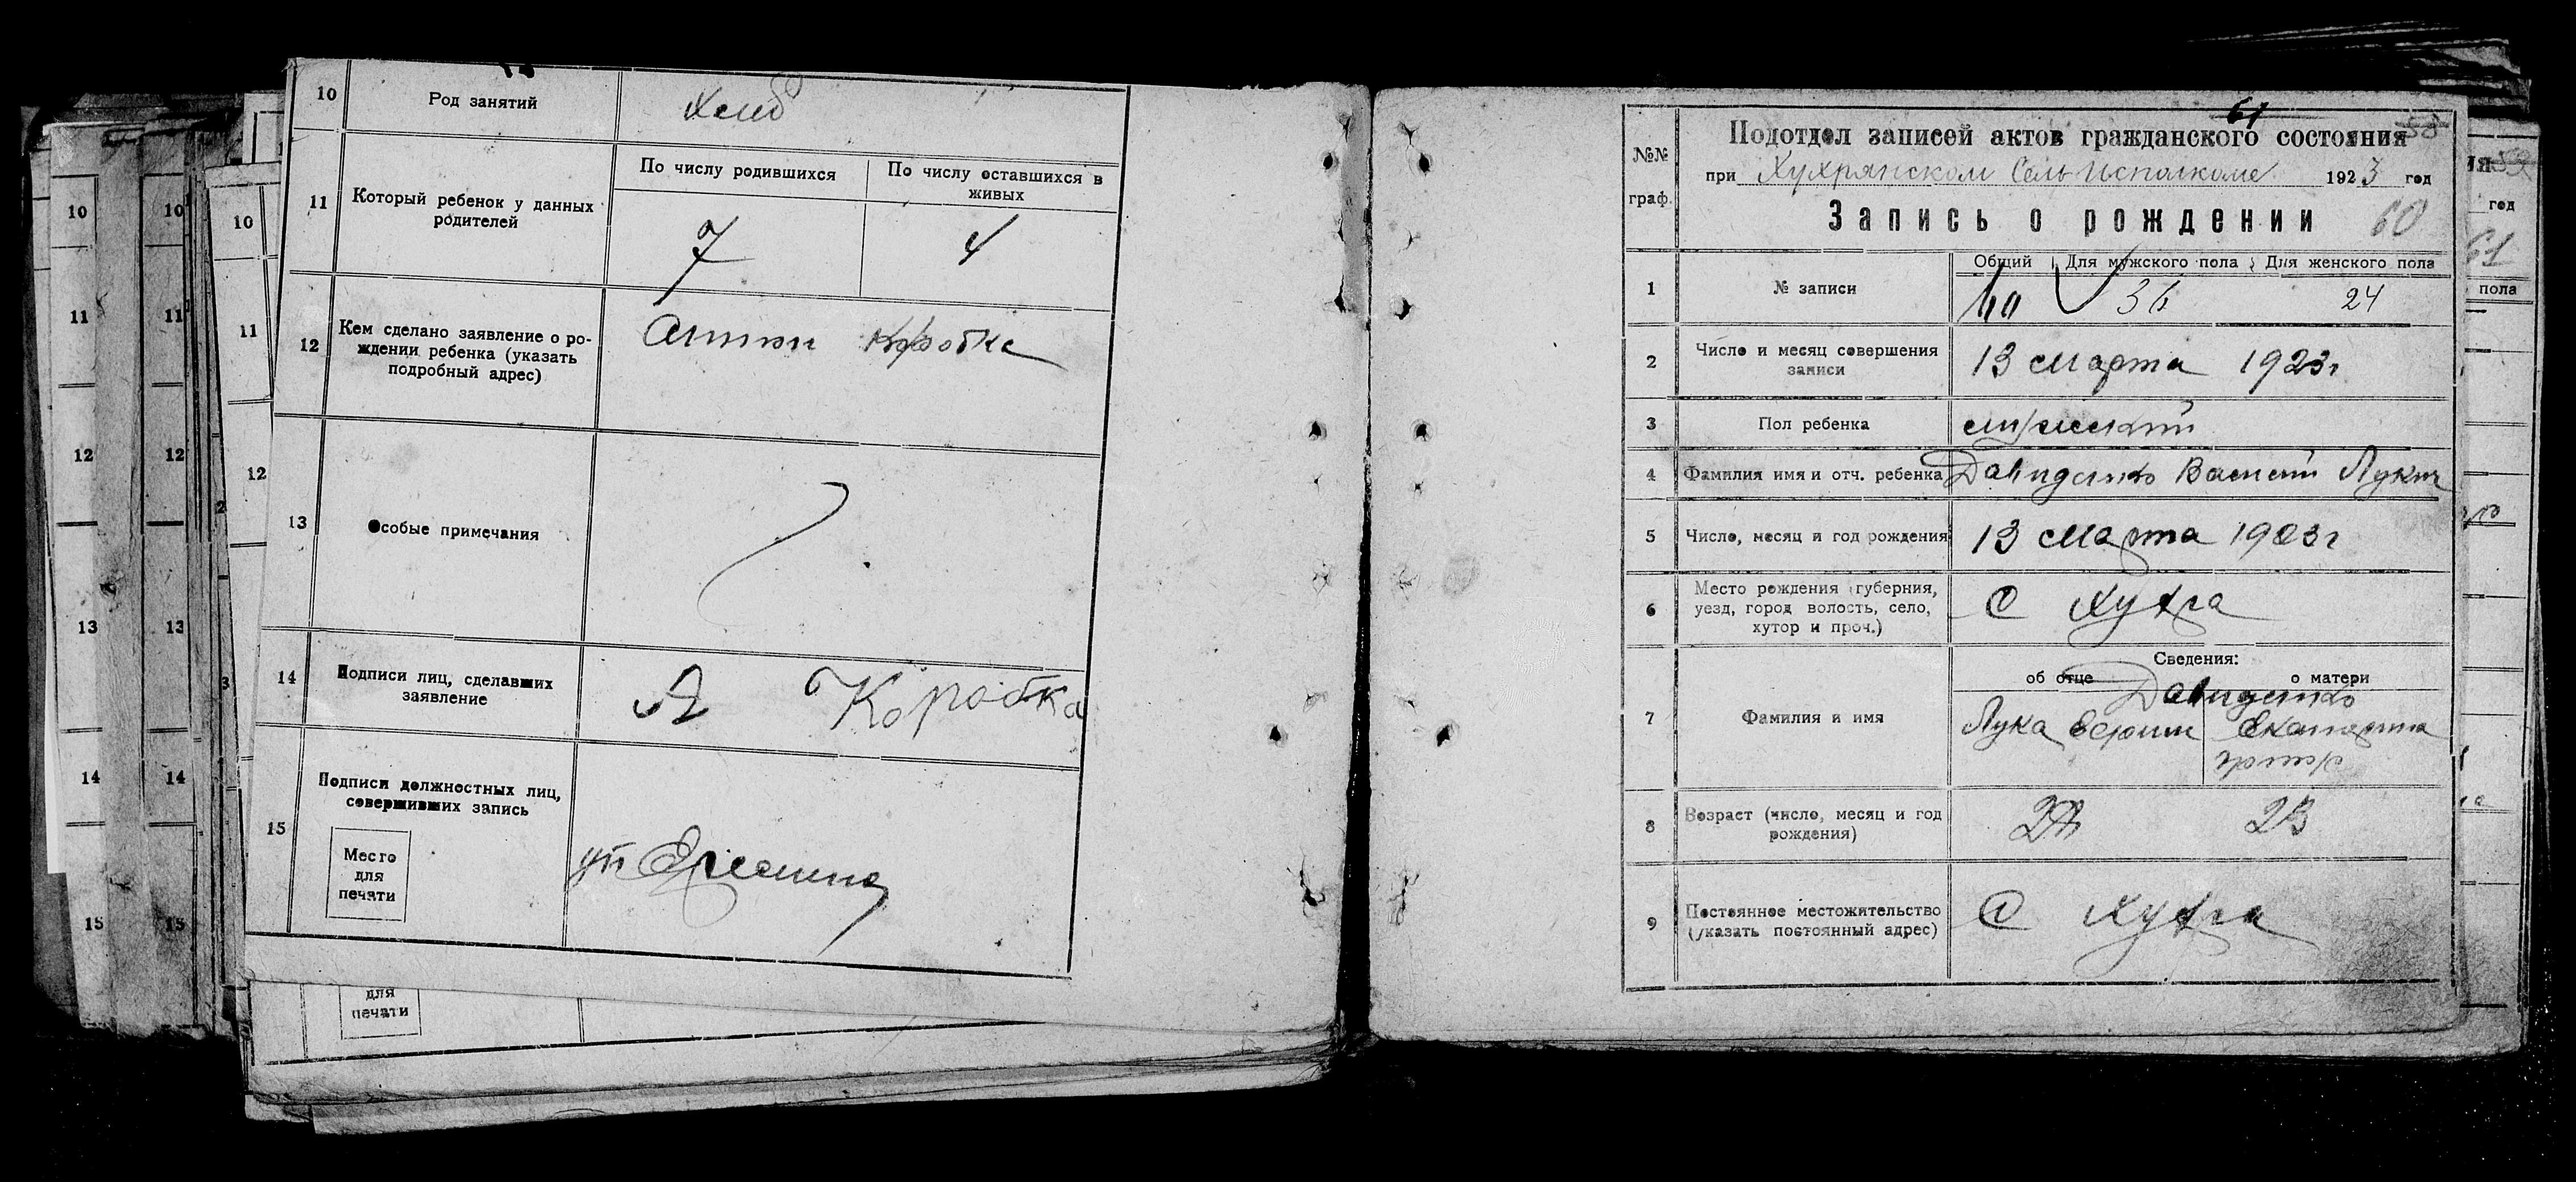 10
Род занятий
Хлеб
11
Который ребенок у данных
родителей
По числу родившихся
По числу оставшихся в
живых
7
4
12
Кем сделано заявление о ро-
ждении ребенка (указать
подробный адрес)
Антон Коробка
13
Особые примечания
14
Подписи лиц, сделавших
заявление
А Коробка
15
Подписи должностных лиц,
совершивших запись
Место
для
печати
для
печати
10
11
12
13
14
15
10
11
12
13
14
15
10
11
12
2
3
61
№№
граф.
Подотдел записей актов гражданского состояния
при Хухрянском Сельисполкоме 1923 год
Запись о рождении 60
1
№ записи
Общий Для мужского пола Для женского пола
60 36 24
2
Число и месяц совершения
записи
13 марта 1923г
3
Пол ребенка
мужский
4
Фамилия имя и отч. ребенка
Давиденко Василий Лукич
5
Число, месяц и год рождения
13 марта 1923г
6
Место рождения (губерния,
уезд, город волость, село,
хутор и проч.)
С Хухра
7
Фамилия и имя
Сведения:
об отце
о матери
Давиденко
Лука
Екатерина
8
Возраст (число, месяц и год
рождения)
23
9
Постоянное местожительство
(указать постоянный адрес)
С Хухра
год
61
пола